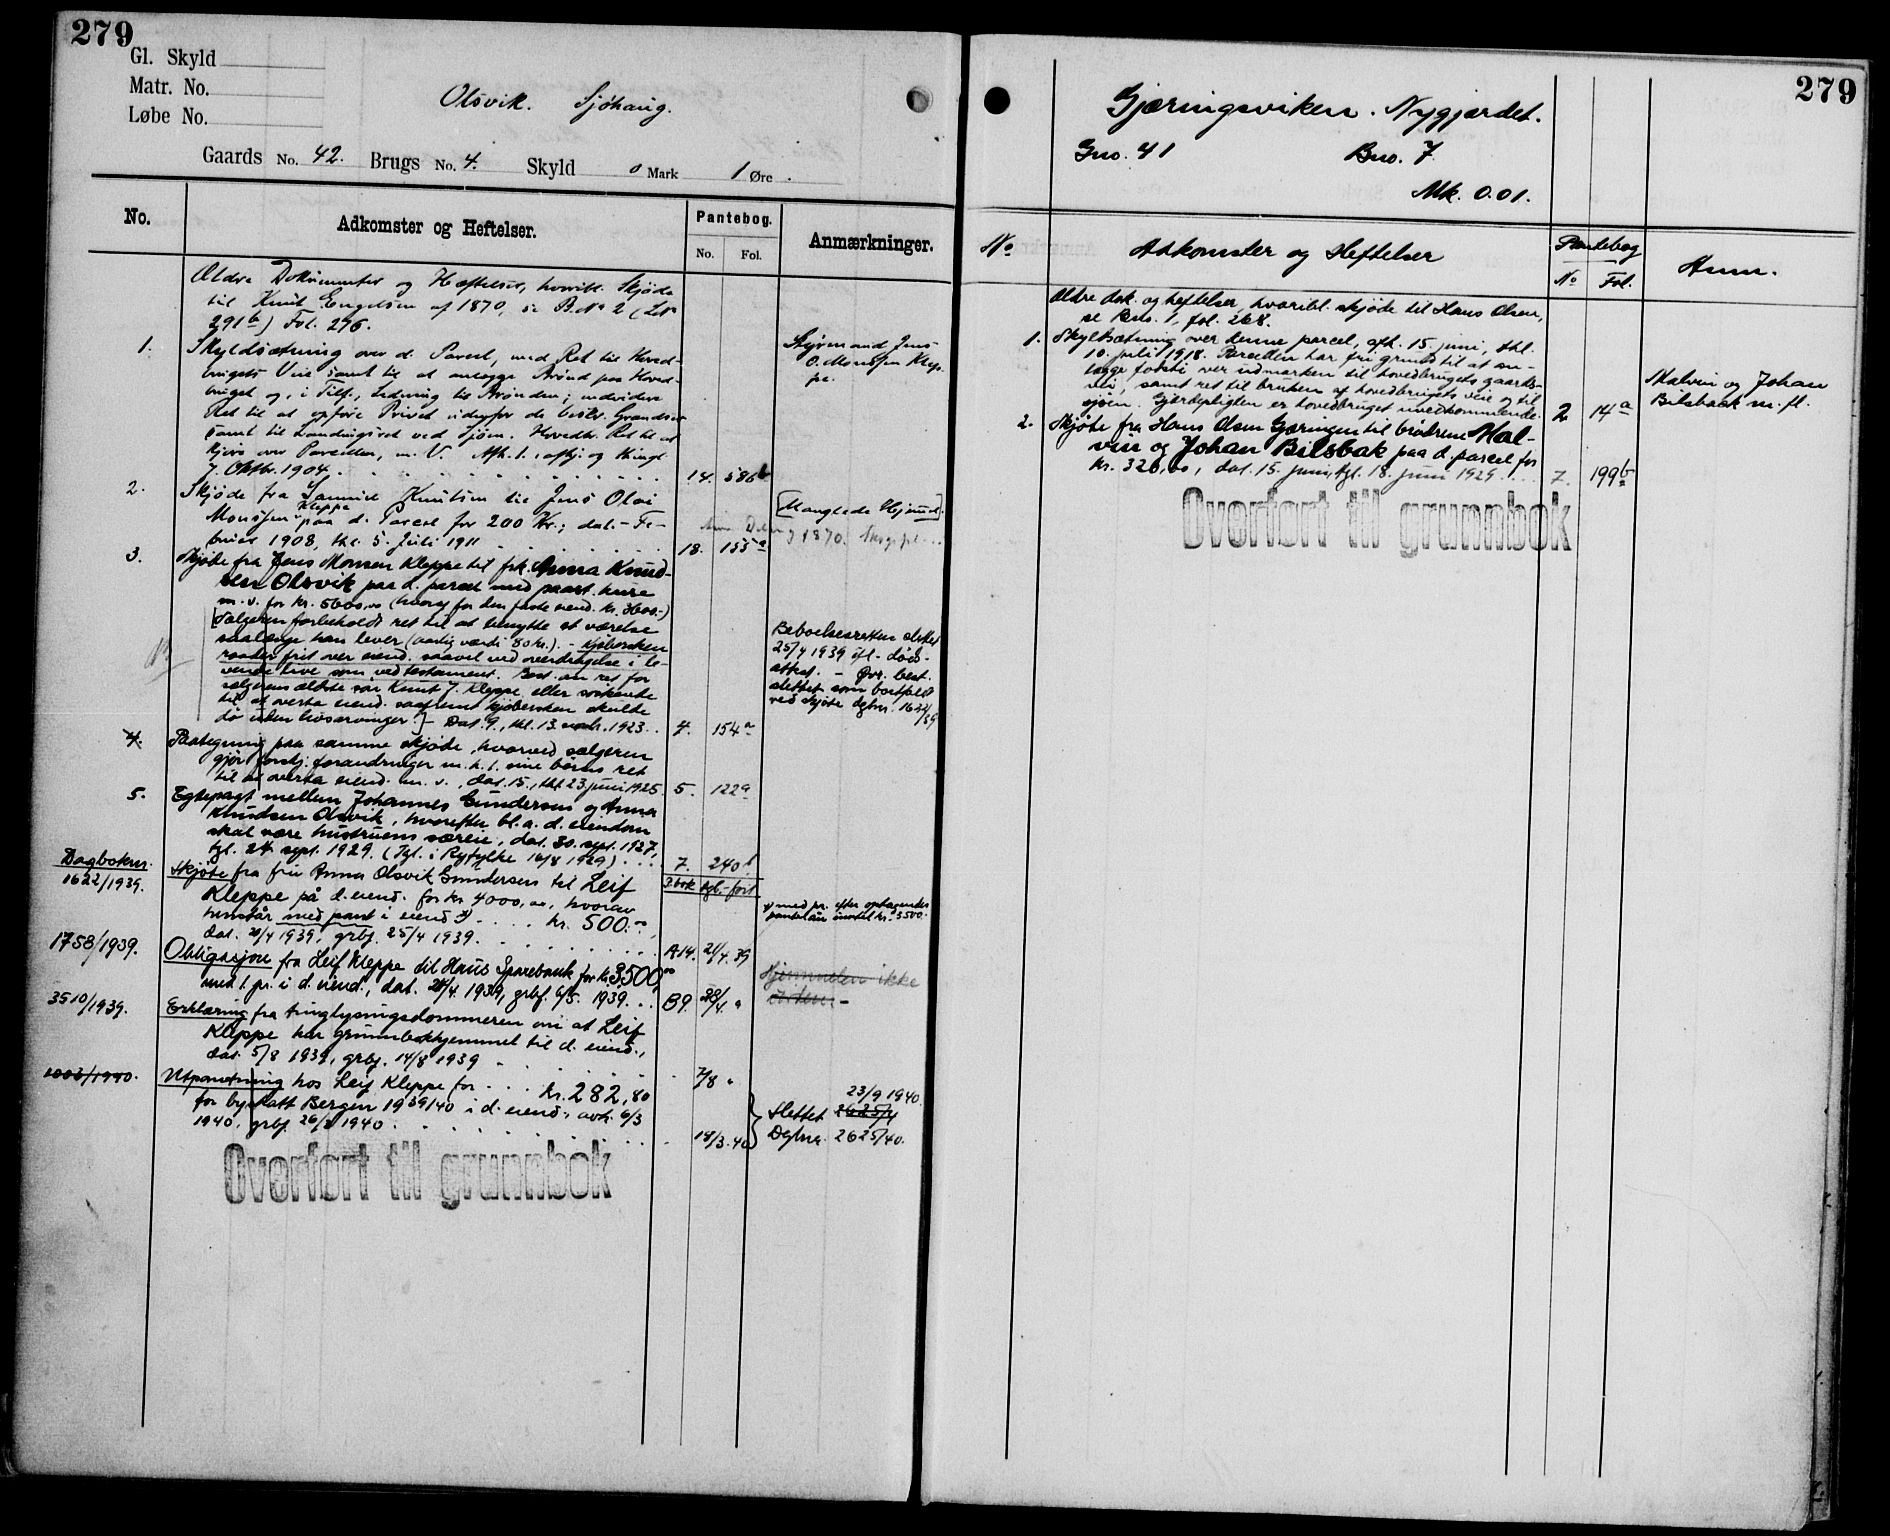 279
Gl. Skyld
Matr. No.
Løbe No.
Olsvik. Sjøhaug.
Gaards No. 42. Brugs No. 4. Skyld 0 Mark 1 Øre.
No. Adkomster og Heftelser. Pantebog. Anmærkninger.
No. Fol.
Ældre Dokumenter og Hæftelser, hvoribl. Skjøde
til Knut Engelsen af 1870, se B.No 2 (LN
291b) Fol. 276.
1. Skyldsætning over d. Parcel, med Ret til Hoved-
brugets Veie samt til at anlægge Brønd paa Hoved-
bruget og, i Tilf., Ledning til Brønden; endvidere
Ret til at opføre Privet udenfor de beskr. Grændser
samt til Landingsret ved Sjøen. Hovedbr. Ret til at
kjøre over Parcellen, m. V. Afh. 1. og thingl.
7. Oktbr. 1904. 14. 586b
Styrmand Jens
O. Monssen Klep-
pe.
2. Skjøde fra Knutsen til Jens Olai
Monssen Kleppe paa d. Parcel for 200 Kr.; dat. - Fe-
bruar 1908, thl. 5. Juli 1911 18. 155a
[Manglede Hjemmel]
3. Skjøte fra Jens Monsen Kleppe til frk. Anna Knud-
sen Olsvik paa d. parcel med paast. huse
m. v. for kr. 5600,00 (hvorav for den faste eiend. kr. 3600.-)
[Sælgeren forbeholdt ret til at benytte et værelse
saalænge han lever (aarlig værdi 80 kr.). - Kjøbersken
raader frit over eiend. saavel ved overdragelse i le-
vende live som ved testament. Best. om ret for
sælgerens ældste søn Knut J. Kleppe eller søskende
til at overta eiend. saafremt kjøbersken skulde
dø uten livsarvinger.] - Dat. 9., thl. 13. 1923. 4. 154a
Beboelsesretten slettet
25/4 1939 ifl. døds-
attest. - Øvr. best.
slettet som bortfaldt
ved skjøte dgbnr. 1622/39
4. Paategning paa samme skjøde, hvorved sælgeren
gjør forskj. forandringer m. h. t. sine børns ret
til at overta eiend. m. v., dat. 15., thl. 23. juni 1925. 5. 122a
5. Egtepagt mellem Johannes Gundersen og Anna
Knudsen Olsvik, hvorefter bl. a. d. eiendom
skal være hustruens særeie, dat. 30. sept. 1927,
tgl. 24. sept. 1929. (Tgl. i Ryfylke 16/8 1929) 7. 240b
Dagboknr.
1622/1939. Skjøte fra fru Anna Olsvik Gundersen til Leif
Kleppe på d. eiend. for kr. 4000,00, hvorav
henstår med pant i eiend. x) kr. 500.00,
dat. 20/4 1939, grbf. 25/4 1939. A14. 21/4. 39
P.bok tgl.-ført
x) med pr. efter optagendes
pantelån inntil kr. 3500.-
1758/1939. Obligasjon fra Leif Kleppe til Haus Sparebank for kr. 3500,00
med 1. pr. i d. eiend., dat. 28/4. 1939, grbf. 6/5. 1939. B9. 28/4. "
Hjemmelen ikke
i orden -
3510/1939. Erklæring fra tinglysningsdommeren om at Leif
Kleppe har grunnbokhjemmel til d. eiend.,
dat. 5/8 1939, grbf. 14/8 1939 7/8 "
1003/1940. Utpantning hos Leif Kleppe for kr. 282,80
for byskatt Bergen 1939/40 i d. eiend., avh. 6/3
1940, grbf. 26/3 1940. 18/3. 40
23/9 1940.
Slettet 2625/4
Dgbnr. 2625/40.
Overført til grunnbok
279
Gjærningsviken. Nygjærdet.
Gno. 41 Bno. 7
Mk. 0.01.
No Adkomster og Heftelser Pantebog Anm.
No Fol.
Ældre dok. og heftelser, hvoribl. skjøde til Hans Olsen,
se Bno. 1, fol. 268.
1. Skyldsætning over denne parcel, afh. 15. juni, thl.
10. juli 1918. Parcellen har fri grund til at an-
lægge fotsti over udmarken til hovedbrugets gaards-
vei, samt ret til bruken af hovedbrugets veie og til
sjøen. Gjærdepligten er hovedbruget uvedkommende. 2 14a
Malvin og Johan
Bilsback m. fl.
2. Skjøte fra Hans Olsen Gjæringen til brødrene Mal-
vin og Johan Bilsbak paa d. parcel for
kr. 320,00, dat. 15. juni, tgl. 18. juni 1929. 7. 199b
Overført til grunnbok